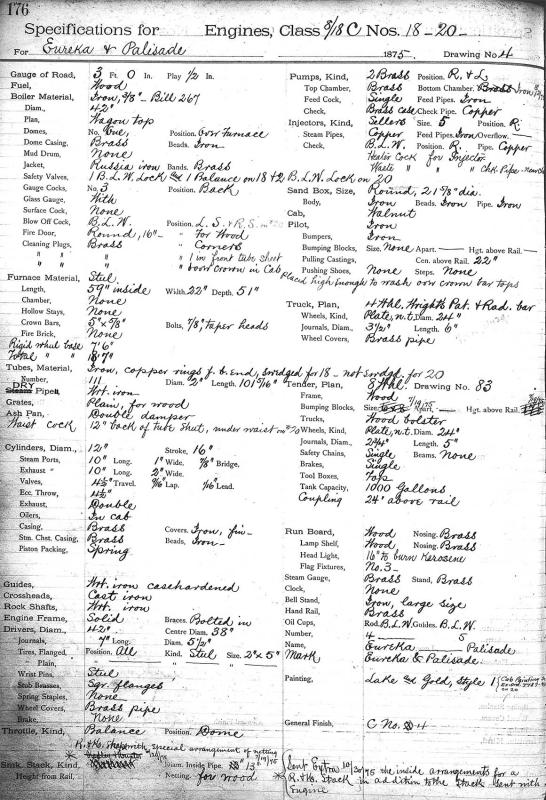 176
Specifications for Engines, Class 8/18 C Nos. 18-20-
For Eureka & Palisade 1875. Drawing No. 4
Gauge of Road, 3 Ft. 0 In. Play 1/2 In.
Fuel, Wood
Boiler Material, Iron, 3/8" - Bill 267
Diam., 42"
Plan, Wagon top
Domes, No. One, Position. Over Furnace
Dome Casing, Brass Beads. Iron
Mud Drum, None
Jacket, Russia iron Bands. Brass
Safety Valves, 1 B.L.W. Lock & 1 Balance on 18 & 2 B.L.W. Lock on 20
Gauge Cocks, No. 3 Position. Back
Glass Gauge, With
Surface Cock, None
Blow Off Cock, B.L.W. Position. L.S. & R.S.
Fire Door, Round, 16" " For Wood
Cleaning Plugs, Brass " Corners
" " " 1 in front tube sheet
" " " over crown in Cab
Placed high enough to wash over crown bar tops
Furnace Material, Steel
Length, 59" inside Width. 22" Depth. 51"
Chamber, None
Hollow Stays, None
Crown Bars, 5" x 5/8" Bolts, 7/8" taper heads
Fire Brick, None
Rigid wheel base 7' 6"
Total " 18' 7"
Tubes, Material, Iron, copper rings f. b. end, swedged for 18 - not swedgd. for 20
Number, 111 Diam. 2" Length. 101 5/16"
DRY Pipe, Wrt. iron
Grates, Plain, for wood
Ash Pan, Double damper
Waist cock 12" back of tube sheet, under waist
Cylinders, Diam., 12" Stroke. 16"
Steam Ports, 10" Long. 1" Wide. 7/8" Bridge.
Exhaust " 10" Long. 2" Wide.
Valves, 4 1/2" Travel. 9/16" Lap. 1/16" Lead.
Ecc. Throw, 4 1/2"
Exhaust, Double
Oilers, In cab
Casing, Brass Covers. Iron, fin-
Stm. Chst. Casing, Brass Beads, Iron-
Piston Packing, Spring
Guides, Wrt. iron casehardened
Crossheads, Cast iron
Rock Shafts, Wrt. iron
Engine Frame, Solid Braces. Bolted in
Drivers, Diam., 42" Centre Diam. 38"
Journals, 7" Long. Diam. 5 1/2"
Tires, Flanged, Position. All Kind. Steel Size. 2" x 5"
" Plain, " " "
Wrist Pins, Steel
Stub Brasses, Sqr. flanges
Spring Staples, None
Wheel Covers, Brass pipe
Brake, None
Throttle, Kind, Balance Position. Dome
special arrangement of netting
Smk. Stack, Kind, Diam. Inside Pipe. 13" 7/19/75
Height from Rail, Netting. for wood
Pumps, Kind, 2 Brass Position. R. & L.
Top Chamber, Brass Bottom Chamber. Iron
Feed Cock, Single Feed Pipes. Iron
Check, Brass case Check Pipe. Copper
Injectors, Kind, Sellers Size. 5 Position, R.
Steam Pipes, Copper Feed Pipes. Iron Overflow.-
Check, B.L.W. Position. R. Pipe. Copper
Heater Cock for Injector
Waste " " " Chk. Pipe
Sand Box, Size, Round, 21 5/8" dia.
Body, Iron Beads. Iron Pipe. Iron
Cab, Walnut
Pilot, Iron
Bumpers, Iron
Bumping Blocks, Size. None Apart. — Hgt. above Rail. —
Pulling Castings, Cen. above Rail. 22"
Pushing Shoes, None Steps. None
Truck, Plan, 4 Whl. Wright's Pat. & Rad. bar
Wheels, Kind, Plate, n.t. Diam. 24"
Journals, Diam., 3 1/2" Length. 6"
Wheel Covers, Brass pipe
Tender, Plan, 8 Whl. Drawing No. 83
Frame, Wood
Bumping Blocks, Size. Apart, — Hgt. above Rail.
Trucks, Wood bolster
Wheels, Kind, Plate, n.t. Diam. 24"
Journals, Diam., 2 3/4" Length. 5"
Safety Chains, Single Beams. None
Brakes, Single
Tool Boxes, Top
Tank Capacity, 1000 Gallons
Coupling 24" above rail
Run Board, Wood Nosing. Brass
Lamp Shelf, Wood, Nosing. Brass
Head Light, 16" to burn Kerosene
Flag Fixtures, No. 3-
Steam Gauge, Brass Stand, Brass
Clock, None
Bell Stand, Iron, large size
Hand Rail, Brass
Oil Cups, Rod. B.L.W. Guides. B.L.W.
Number, 4 — 5
Name, Eureka — Palisade
Mark Eureka & Palisade.
Painting, Lake & Gold, Style 1
General Finish, C No. 4
Sent Extra 10/30/75 the inside arrangements for a
R. & Hs. Stack in addition to the Stack sent with
Engine